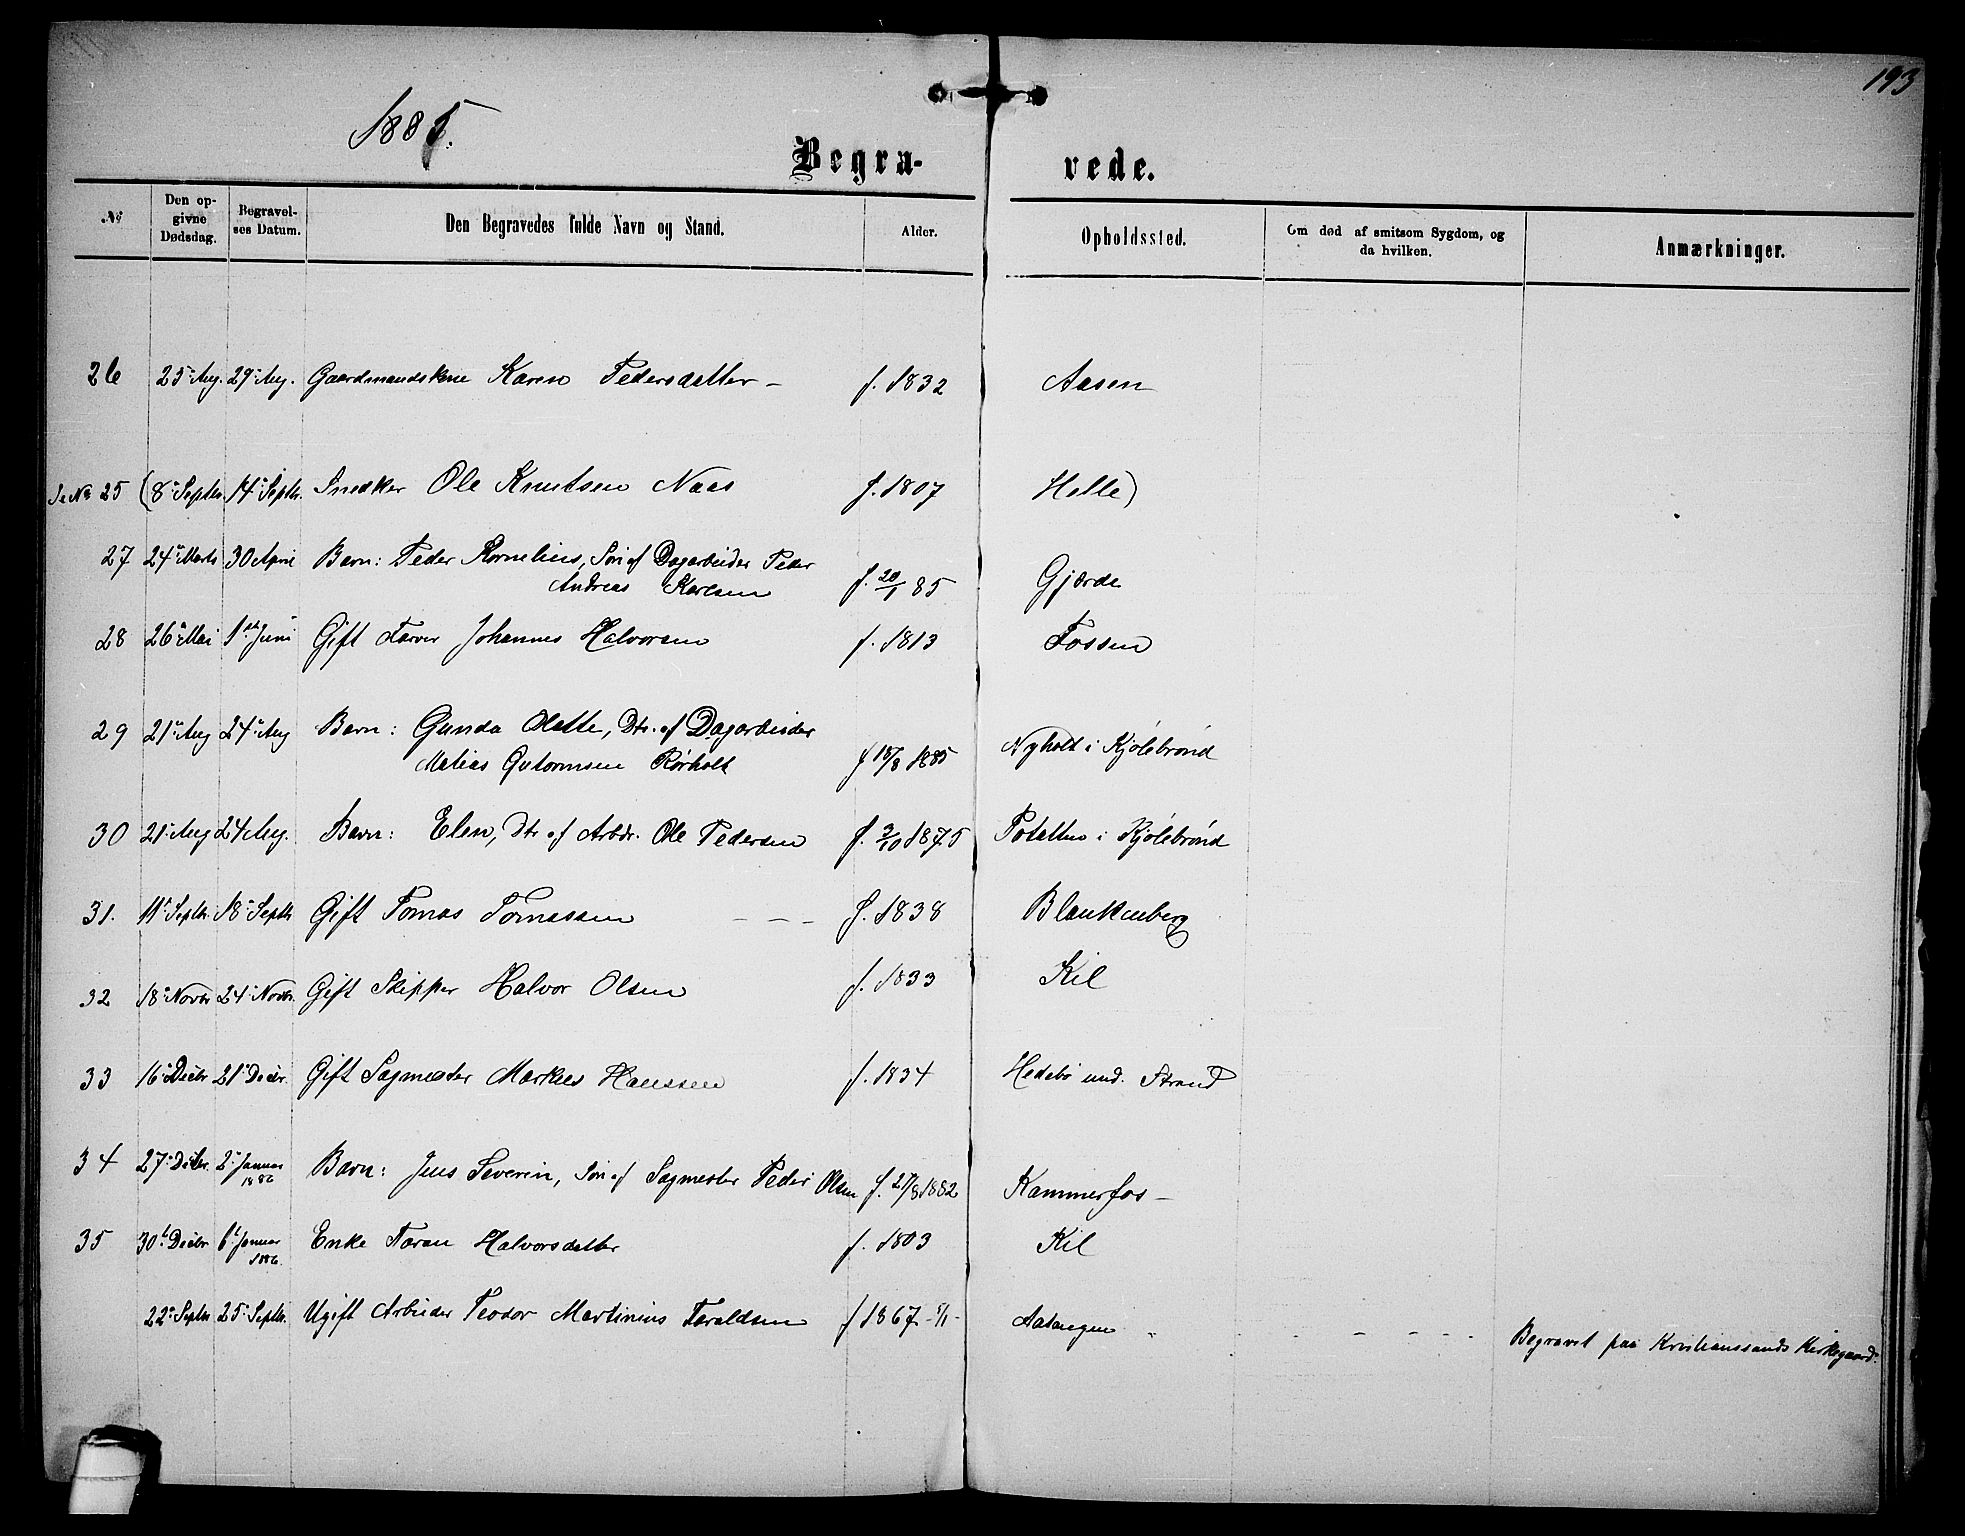 193
1885.
Begra- vede.
№ Den opgivne Dødsdag. Begravelses Datum. Den Begravedes fulde Navn og Stand. Alder. Opholdssted. Om død af smitsom Sygdom, og da hvilken. Anmærkninger.
26 25 Aug. 29 Aug. Gaardmandskone Karen Pedersdatter - f. 1832 Aasen
Se No 25 (8 Septbr 14 Septbr. Snedker Ole Knutsen Naas f. 1807 Helle)
27 24 Marts 30 April Barn: Peder Kornelius, Søn af Dagarbeider Peder
Andreas Karlsen f. 20/1 85 Gjærde
28 26 Mai 1ste Juni Gift Farver Johannes Halvorsen f. 1813 Fossen
29 21 Aug 24 Aug Barn: Gunda Olette, Dtr. af Dagarbeider
Matias Gutormsen Rørholt f 18/8 1885 Nyholt i Kjølebrønd
30 21 Aug 24 Aug. Barn: Elen, Dtr af Arbdr. Ole Pedersen f. 3/10 1875 Potetten i Kjølebrønd
31. 11 Septbr. 18 Septbr Gift Tomas Tomassen - - - f. 1838 Blankenberg
32 18 Novbr 24 Novbr. Gift Skipper Halvor Olsen f. 1833 Kil
33 16 Decbr 21 Decbr. Gift Sagmester Markus Hanssen f. 1834 Hedebø und. Strand
34 27 Decbr. 2 Januar 1886 Barn: Jens Severin, Søn af Sagmester Peder Olsen f. 21/8 1882 Kammerfos -
35 30 Decbr 6 Januar 1886. Enke Taran Halvorsdatter f. 1803 Kil
22 Septbr 25 Septbr. Ugift Arbeider Teodor Martinius Taraldsen f 1867 - 5/1 - Aatangen - - - - - Begravet paa Kristianssands Kirkegaard.